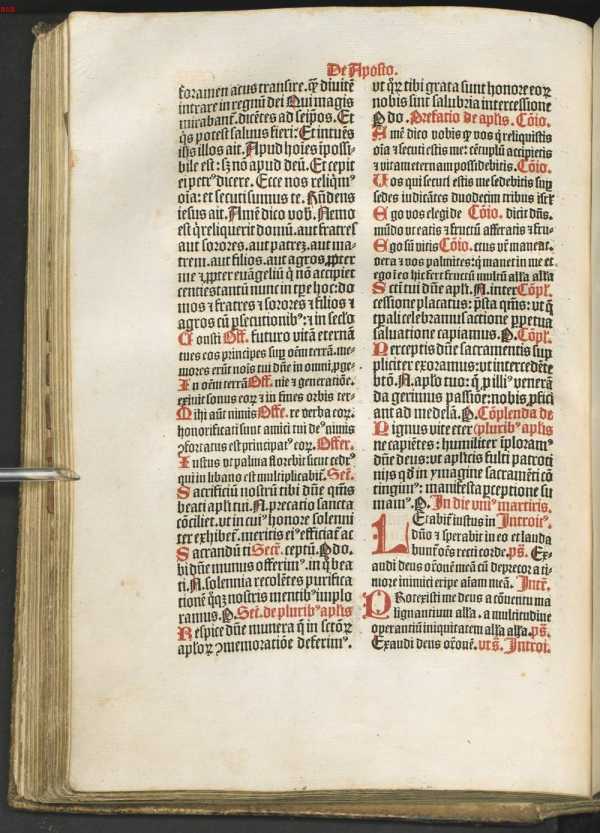 De Aposto.
foramen acus transire. qȝ diuitē
intrare in regnū dei Qui magis
mirabant᷑. dicētes ad seip̄os. Et
qͥs potest saluus fieri: Et intuēs
ih̄s illos ait. Apud hoīes īpossi-
bile est: sꝫ nō apud deū. Et cepit
ei petr⁹ dicere. Ecce nos reliqͥm⁹
oīa: et secuti sumus te. Rn̄dens
iesus ait. Amē dico vob̄. Nemo
est qͥ reliquerit domū. aut fratres
aut sorores. aut patrē. aut ma-
trem. aut filios. aut agros ꝓpter
me ⁊ ꝓpter euāgeliū qͥ nō accipiet
centies tantū nunc in tꝑe hoc: do
mos ⁊ fratres ⁊ sorores ⁊ filios ⁊
agros cū ꝑsecutionib⁹: ⁊ in seclo
Consti Off. futuro vitā eternā
tues eos principes suꝑ oēm terrā. me-
mores erūt noīs tui dn̄e in omni ꝓge-
In oēm terrā Off. nie ⁊ generatiōe.
exiuit sonus eoꝝ ⁊ in fines orbis ter-
Mihi aūt nimis Offe. re verba eoꝝ.
honorificati sunt amici tui de⁹ nimis
ꝯfortatus est principat⁹ eoꝝ. Offer.
Iustus vt palma florebit sicut cedr⁹
qui in libano est multiplicabit᷑. Sec̄.
Sacrificiū nostrū tibi dn̄e qm̄s
beati apl̄i tui. N. precatio sancta
cōciliet. vt in cui⁹ honore solenni
ter exhibet᷑. meritis ei⁹ efficiat᷑ ac
Sacrandū ti Secr̄. ceptū. ꝑ do.
bi dn̄e munus offerim⁹. in qͦ bea
ti. N. solennia recolētes purifica
tionē qͦqꝫ nostris mentib⁹ implo
ramus. ꝑ. Sec̄. de plurib⁹ apl̄is
Respice dn̄e munera q̄ in sc̄toꝝ
apl̄oꝝ ꝯmemoratiōe deferim⁹.
vt qͥ tibi grata sunt honore eoꝝ
nobis sint salubria intercessione
ꝑ do. Prefatio de apl̄is. Cōio.
Amē dico vobis ꝙ vos qͥ reliquistis
oīa ⁊ secuti estis me: cētuplū accipietis
⁊ vitam eternam possidebitis. Cōio.
Vos qui secuti estis me sedebitis suꝑ
sedes iudicātes duodecim tribus isrl̄
Ego vos elegi de Cōio. dicit dn̄s.
mūdo vt eatis ⁊ fructū afferatis ⁊ fru-
Ego sū vitis Cōio. ctus vr̄ maneat.
vera ⁊ vos palmites: qͥ manet in me et
ego ī eo hic fert fructū multū all̄a all̄a
Sc̄i tui dn̄e apl̄i. N. inter Cōpl̄.
cessione placatus: p̄sta qm̄s: vt qͥ
tꝑali celebramus actione ꝑpetua
saluatione capiamus. ꝑ. Cōpl̄.
Perceptis dn̄e sacramentis sup
pliciter exoramus: vt intercedēte
btō. N. apl̄o tuo: q̄ ꝓ illi⁹ veneran
da gerimus passiōe: nobis ꝓfici
ant ad medelā. ꝑ. Cōplenda de
Pignus vite eter (plurib⁹ apl̄is
ne capiētes: humiliter īploram⁹
dn̄e deus: vt apl̄icis fulti patroci
nijs qd̄ in ymagine sacramēti cō
tingim⁹: manifesta ꝑceptione su
mam⁹. ꝑ. In die vni⁹ martiris.
Letabit᷑ iustus in Introit⁹.
dn̄o ⁊ sperabit in eo et lauda
bunt᷑ oēs recti corde. pš. Ex-
audi deus or̄onē meā cū deprecor a ti-
more inimici eripe aīam meā. Intr̄.
Protexisti me deus a cōuentu ma
lignantium all̄a. a multitudine
operantiū iniquitatem all̄a all̄a. pš.
Exaudi deus or̄onē. vt s̄. Introi.